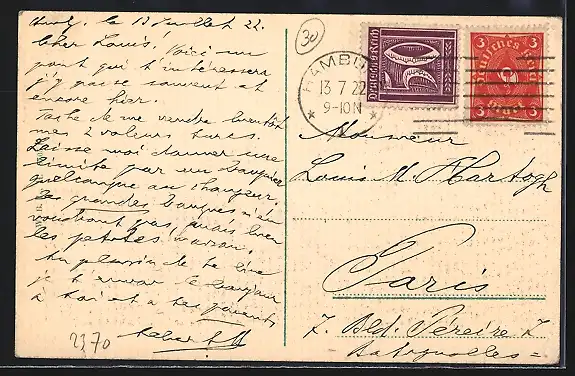 le 13 Juillet 22.
Cher Louis! Voici un
pont qui t'intéressera
j'y passe souvent et
encore hier.
Tache de me vendre bientôt
mes 2 valeurs
Laisse moi donner une
limite par un banquier
quelconque ou changeur,
les grandes banques n'en
voudront pas, mais bien
les petites
Au plaisir de te lire
je t'envoie le bonjour
à toi et à tes parents
2370
30
HAMBURG
13 7 22
9-10 N
Deutsches Reich
Deutsches Reich
3
3
3
3
Monsieur
Louis M. Hartogh
Paris
7. Bld. Pereire 7
Batignolles